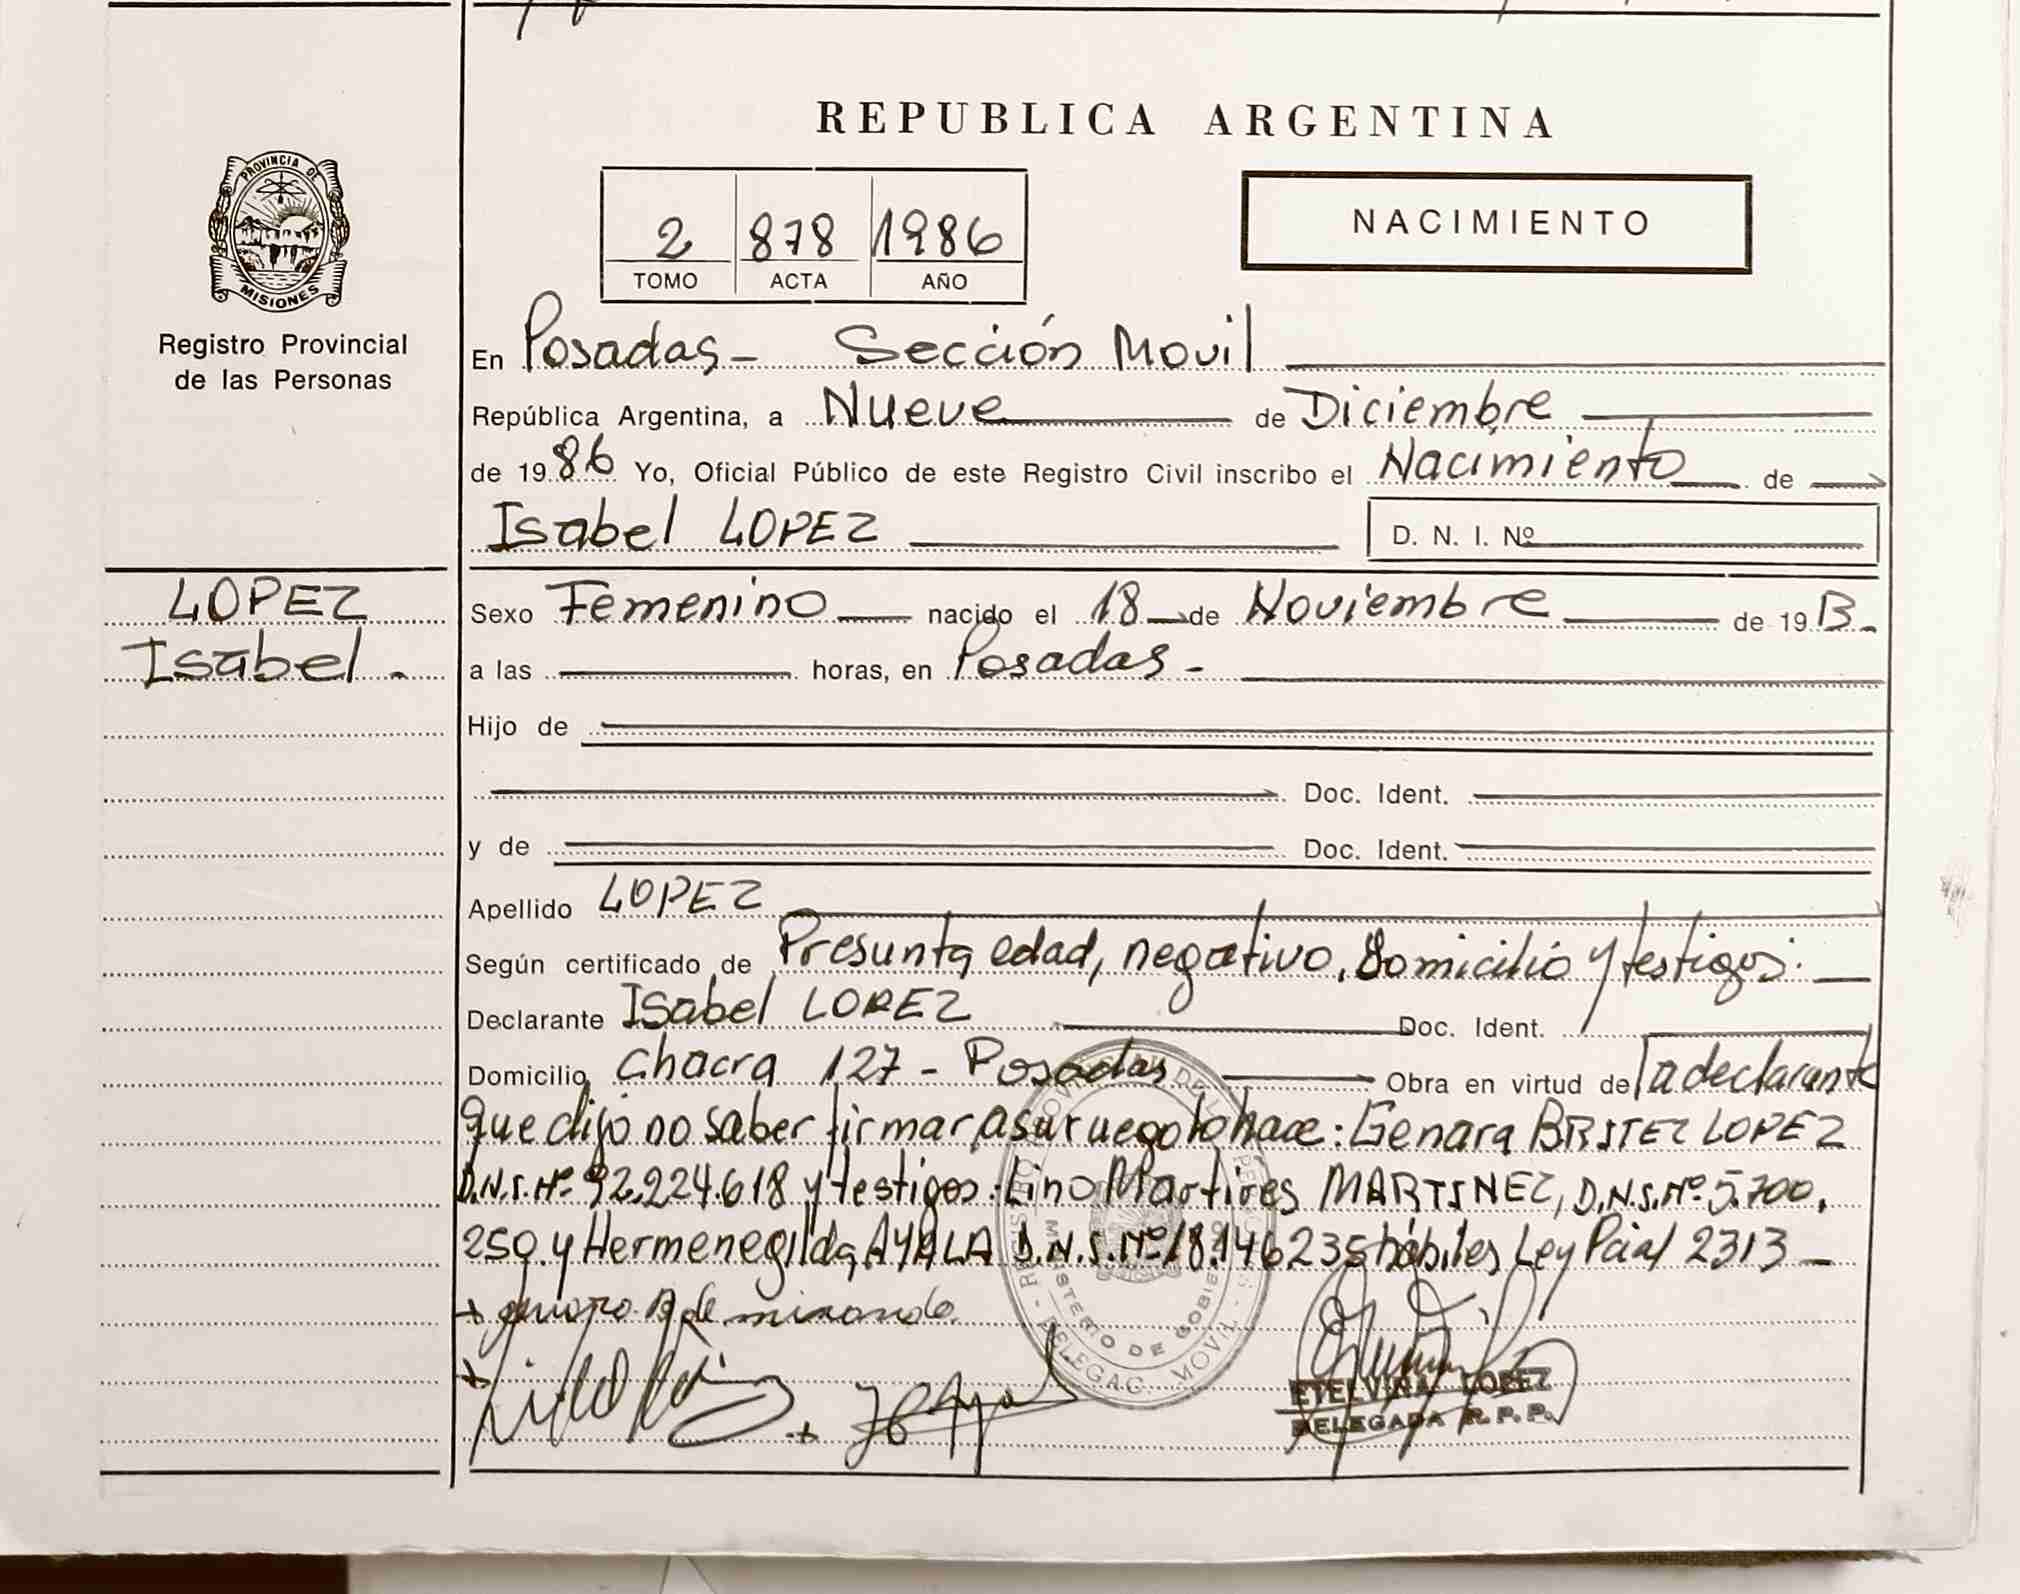 REPUBLICA ARGENTINA
PROVINCIA DE
MISIONES
Registro Provincial
de las Personas
2 878 1986
TOMO ACTA AÑO
NACIMIENTO
En Posadas - Sección Movil
República Argentina, a Nueve de Diciembre
de 1986 Yo, Oficial Público de este Registro Civil inscribo el Nacimiento de
Isabel LOPEZ D. N. I. Nº
LOPEZ
Isabel.
Sexo Femenino nacido el 18 de Noviembre de 19
a las horas, en Posadas -
Hijo de
Doc. Ident.
y de Doc. Ident.
Apellido LOPEZ
Según certificado de Presunta edad, negativo, Domicilio y testigos.
Declarante Isabel LOPEZ Doc. Ident.
Domicilio Chacra 127 - Posadas Obra en virtud de la declarante
que dijo no saber firmar, a su ruego lo hace: Genara BRITEZ LOPEZ
D.N.I. Nº 92.224.618 y testigos: Lino Martires MARTINEZ, D.N.I. Nº 5.700.
250 y Hermenegilda AYALA D.N.I. Nº 18.146235 hábiles Ley Pcial 2313 -
MINISTERIO DE GOBIERNO
DELEGAC. MOVIL
ETELVINA LOPEZ
DELEGADA R.P.P.